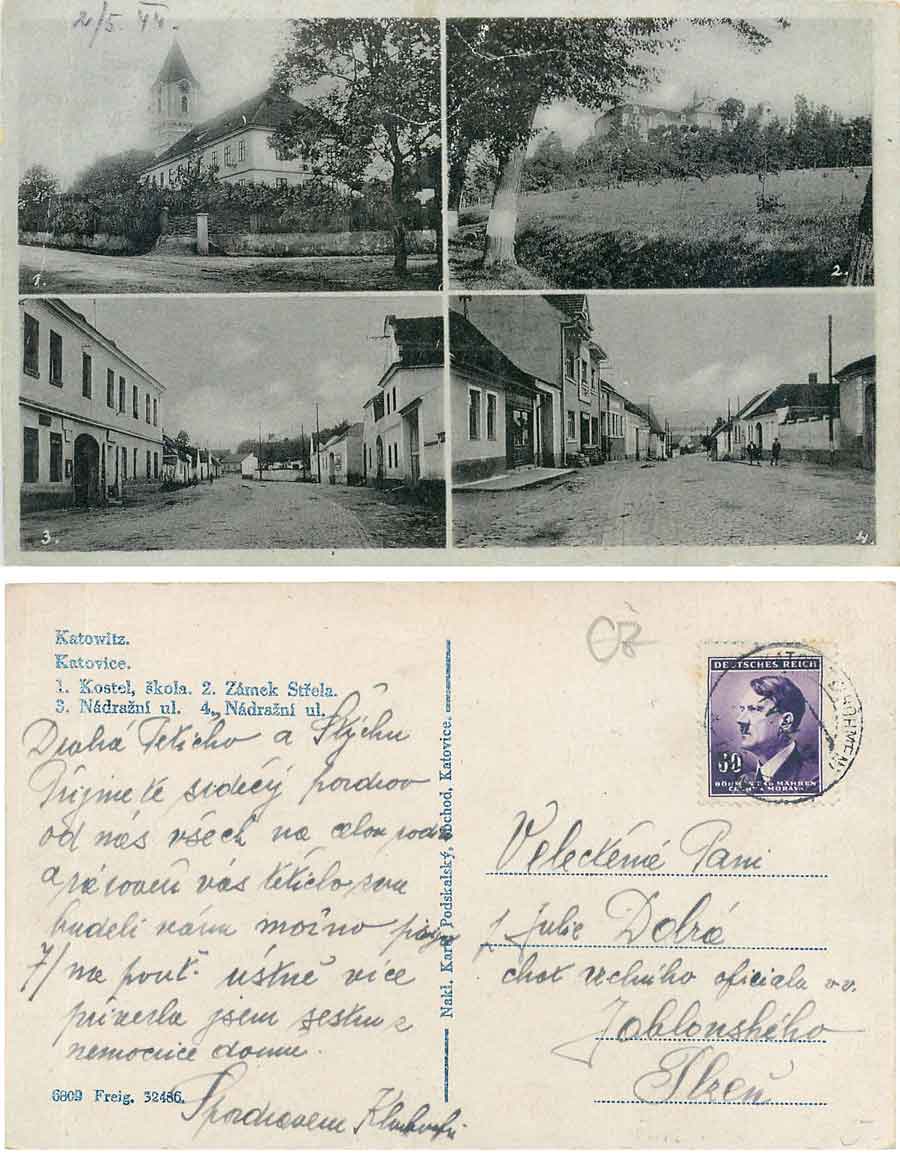 2/5. 44.
1.
2.
3.
4.
Katowitz.
Katovice.
1. Kostel, škola. 2. Zámek Střela.
3. Nádražní ul. 4. Nádražní ul.
Drahá Tetičko a
Přijměte srdečný pozdrav
od nás všech na celou
vás tětičko zvu
budeli vám možno
7/ na pouť. ústně více
přivezla jsem sestru z
nemocnice domu.
S pozdravem
6809 Freig. 32486.
Nakl. Karel Podskalský, obchod, Katovice.
ČŽ
DEUTSCHES REICH
60
BÖHMEN UND MÄHREN
ČECHY A MORAVA
BÖHMEN
Veleckěné Paní
Julie Dobrá
choť vrchního oficiala v.v.
Jablonského
Plzeň